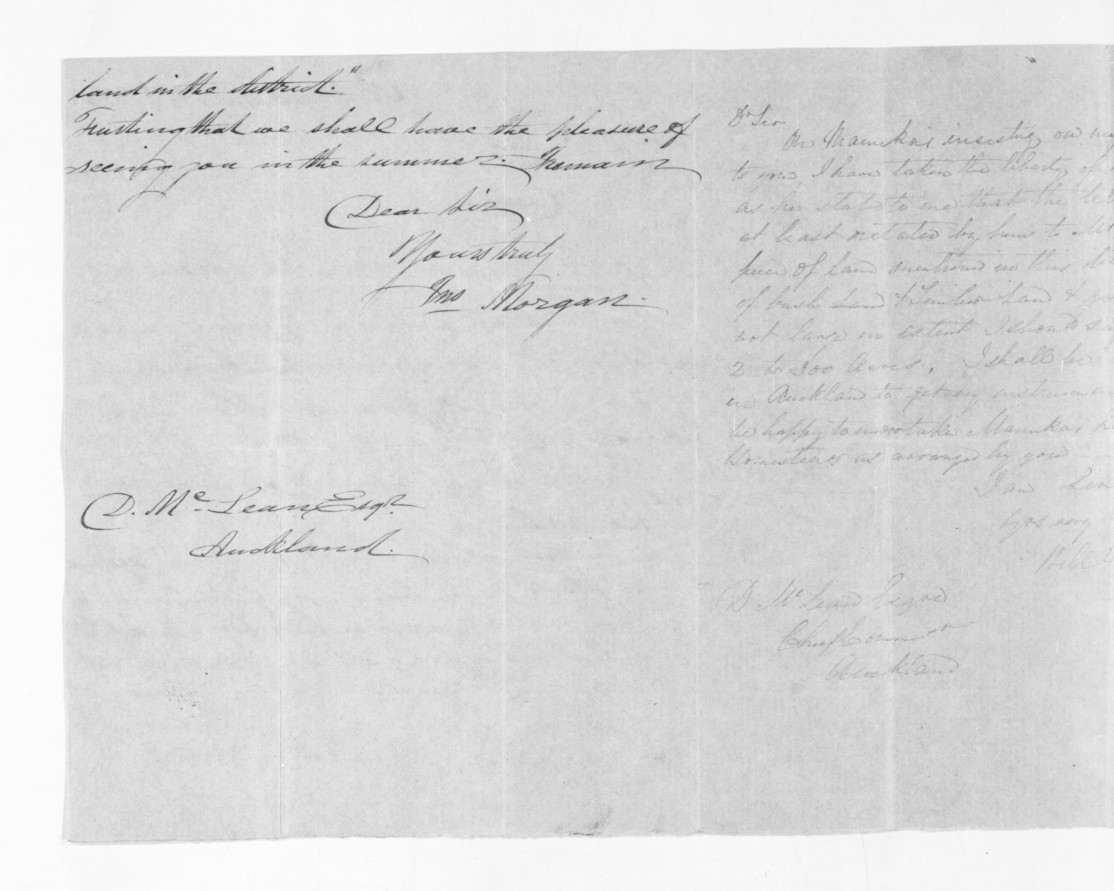 land in the district."
Trusting that we shall have the pleasure of
seeing you in the summer. I remain
Dear Sir
Yours truly
Jno Morgan.
D. McLean Esqr.
Auckland.
Dr Sir
On Manuka's insisting on
to you, I have taken the liberty of
as he stated to me that the
at least by him to
piece of land mentioned in this
of bush land & timber land &
not large in extent I should
2 to 300 Acres. I shall be
in Auckland to get my
be happy to undertake Manukas
as arranged by you
I am Sir
Yrs very
D McLean Esqre
Chief Commr
Auckland